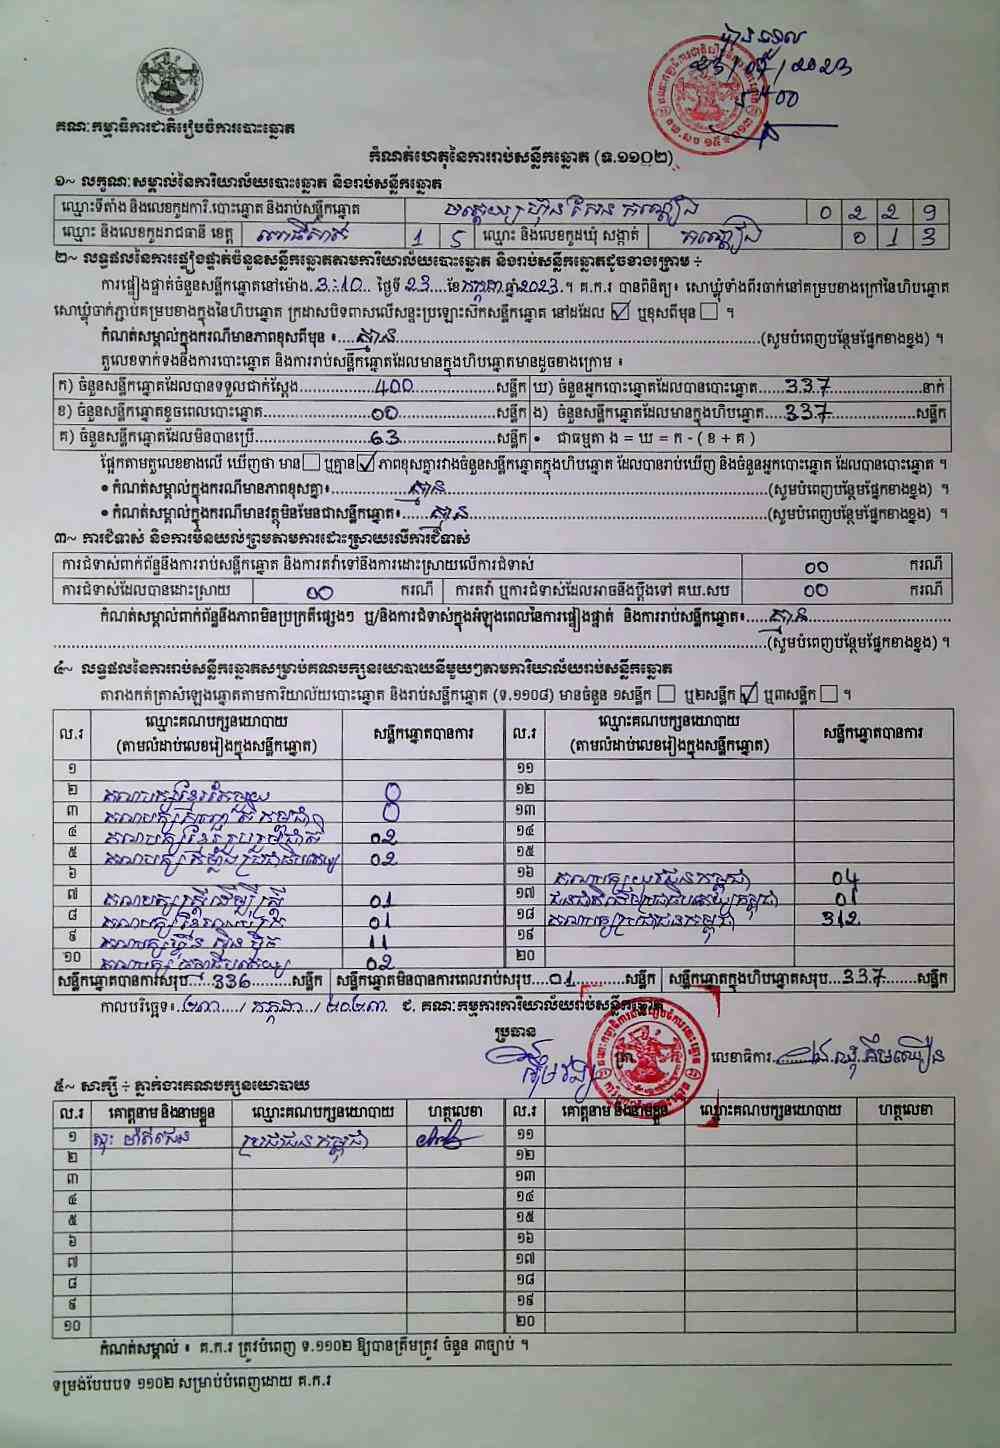 គណៈកម្មាធិការជាតិរៀបចំការបោះឆ្នោត
កំណត់ហេតុនៃការរាប់សន្លឹកឆ្នោត (ទ.១១០២)
១~ លក្ខណៈសម្គាល់នៃការិយាល័យបោះឆ្នោត និងរាប់សន្លឹកឆ្នោត
ឈ្មោះទីតាំង និងលេខកូដការិ.បោះឆ្នោត និងរាប់សន្លឹកឆ្នោត 0 2 2 9
ឈ្មោះ និងលេខកូដរាជធានី ខេត្ត ពោធិ៍សាត់ 1 5 ឈ្មោះ និងលេខកូដឃុំ សង្កាត់ 0 1 3
២~ លទ្ធផលនៃការផ្ទៀងផ្ទាត់ចំនួនសន្លឹកឆ្នោតតាមការិយាល័យបោះឆ្នោត និងរាប់សន្លឹកឆ្នោតដូចខាងក្រោម ÷
ការផ្ទៀងផ្ទាត់ចំនួនសន្លឹកឆ្នោតនៅម៉ោង 3:10 ថ្ងៃទី 23 ខែ កក្កដា ឆ្នាំ 2023 ។ គ.ក.រ បានពិនិត្យ៖ សោឃ្លុំទាំងពីរចាក់នៅគម្របខាងក្រៅនៃហិបឆ្នោត
សោឃ្លុំចាក់ភ្ជាប់គម្របខាងក្នុងនៃហិបឆ្នោត ក្រដាសបិទពាសលើសន្ទះប្រឡោះសឹកសន្លឹកឆ្នោត នៅដដែល ☑ ឬខុសពីមុន ☐ ។
កំណត់សម្គាល់ក្នុងករណីមានភាពខុសពីមុន ៖ គ្មាន (សូមបំពេញបន្ថែមផ្នែកខាងខ្នង) ។
តួលេខទាក់ទងនឹងការបោះឆ្នោត និងការរាប់សន្លឹកឆ្នោតដែលមានក្នុងហិបឆ្នោតមានដូចខាងក្រោម ៖
ក) ចំនួនសន្លឹកឆ្នោតដែលបានទទួលជាក់ស្តែង 400 សន្លឹក ឃ) ចំនួនអ្នកបោះឆ្នោតដែលបានបោះឆ្នោត 337 នាក់
ខ) ចំនួនសន្លឹកឆ្នោតខូចពេលបោះឆ្នោត 00 សន្លឹក ង) ចំនួនសន្លឹកឆ្នោតដែលមានក្នុងហិបឆ្នោត 337 សន្លឹក
គ) ចំនួនសន្លឹកឆ្នោតដែលមិនបានប្រើ 63 សន្លឹក • ជាធម្មតា ង = ឃ = ក - ( ខ + គ )
ផ្អែកតាមតួលេខខាងលើ ឃើញថា មាន ☐ ឬគ្មាន ☑ ភាពខុសគ្នារវាងចំនួនសន្លឹកឆ្នោតក្នុងហិបឆ្នោត ដែលបានរាប់ឃើញ និងចំនួនអ្នកបោះឆ្នោត ដែលបានបោះឆ្នោត ។
• កំណត់សម្គាល់ក្នុងករណីមានភាពខុសគ្នា៖ គ្មាន (សូមបំពេញបន្ថែមផ្នែកខាងខ្នង) ។
• កំណត់សម្គាល់ក្នុងករណីមានវត្ថុមិនមែនជាសន្លឹកឆ្នោត៖ គ្មាន (សូមបំពេញបន្ថែមផ្នែកខាងខ្នង) ។
៣~ ការជំទាស់ និងការមិនយល់ព្រមតាមការដោះស្រាយលើការជំទាស់
ការជំទាស់ពាក់ព័ន្ធនឹងការរាប់សន្លឹកឆ្នោត និងការតវ៉ាទៅនឹងការដោះស្រាយលើការជំទាស់ 00 ករណី
ការជំទាស់ដែលបានដោះស្រាយ 00 ករណី ការតវ៉ា ឬការជំទាស់ដែលអាចនឹងប្តឹងទៅ គឃ.សប 00 ករណី
កំណត់សម្គាល់ពាក់ព័ន្ធនឹងភាពមិនប្រក្រតីផ្សេងៗ ឬ/និងការជំទាស់ក្នុងអំឡុងពេលនៃការផ្ទៀងផ្ទាត់ និងការរាប់សន្លឹកឆ្នោត៖ គ្មាន
(សូមបំពេញបន្ថែមផ្នែកខាងខ្នង) ។
៤~ លទ្ធផលនៃការរាប់សន្លឹកឆ្នោតសម្រាប់គណបក្សនយោបាយនីមួយៗតាមការិយាល័យរាប់សន្លឹកឆ្នោត
តារាងកត់ត្រាសំឡេងឆ្នោតតាមការិយាល័យបោះឆ្នោត និងរាប់សន្លឹកឆ្នោត (ទ.១១០៨) មានចំនួន ១សន្លឹក ☐ ឬ២សន្លឹក ☑ ឬ៣សន្លឹក ☐ ។
ល.រ ឈ្មោះគណបក្សនយោបាយ (តាមលំដាប់លេខរៀងក្នុងសន្លឹកឆ្នោត) សន្លឹកឆ្នោតបានការ ល.រ ឈ្មោះគណបក្សនយោបាយ (តាមលំដាប់លេខរៀងក្នុងសន្លឹកឆ្នោត) សន្លឹកឆ្នោតបានការ
១ ១១
២ គណបក្សខ្មែរតែមួយ 0 ១២
៣ 0 ១៣
៤ គណបក្សខ្មែររួបរួមជាតិ 02 ១៤
៥ គណបក្សកម្លាំងប្រជាធិបតេយ្យ 02 ១៥
៦ ១៦ គណបក្សយុវជនកម្ពុជា 04
៧ គណបក្សស្ត្រីដើម្បីស្ត្រី 01 ១៧ 01
៨ 01 ១៨ គណបក្សប្រជាជនកម្ពុជា 312
៩ គណបក្សហ៊្វុនស៊ិនប៉ិច 11 ១៩
១០ 02 ២០
សន្លឹកឆ្នោតបានការសរុប 336 សន្លឹក សន្លឹកឆ្នោតមិនបានការពេលរាប់សរុប 01 សន្លឹក សន្លឹកឆ្នោតក្នុងហិបឆ្នោតសរុប 337 សន្លឹក
កាលបរិច្ឆេទ៖ ២៣ / កក្កដា / ២០២៣ ជ. គណៈកម្មការការិយាល័យរាប់សន្លឹកឆ្នោត
ប្រធាន
លេខាធិការ
៥~ សាក្សី ÷ ភ្នាក់ងារគណបក្សនយោបាយ
ល.រ គោត្តនាម និងនាមខ្លួន ឈ្មោះគណបក្សនយោបាយ ហត្ថលេខា ល.រ គោត្តនាម និងនាមខ្លួន ឈ្មោះគណបក្សនយោបាយ ហត្ថលេខា
១ ប្រជាជនកម្ពុជា ១១
២ ១២
៣ ១៣
៤ ១៤
៥ ១៥
៦ ១៦
៧ ១៧
៨ ១៨
៩ ១៩
១០ ២០
កំណត់សម្គាល់ ៖ គ.ក.រ ត្រូវបំពេញ ទ.១១០២ ឱ្យបានត្រឹមត្រូវ ចំនួន ៣ច្បាប់ ។
ទម្រង់បែបបទ ១១០២ សម្រាប់បំពេញដោយ គ.ក.រ